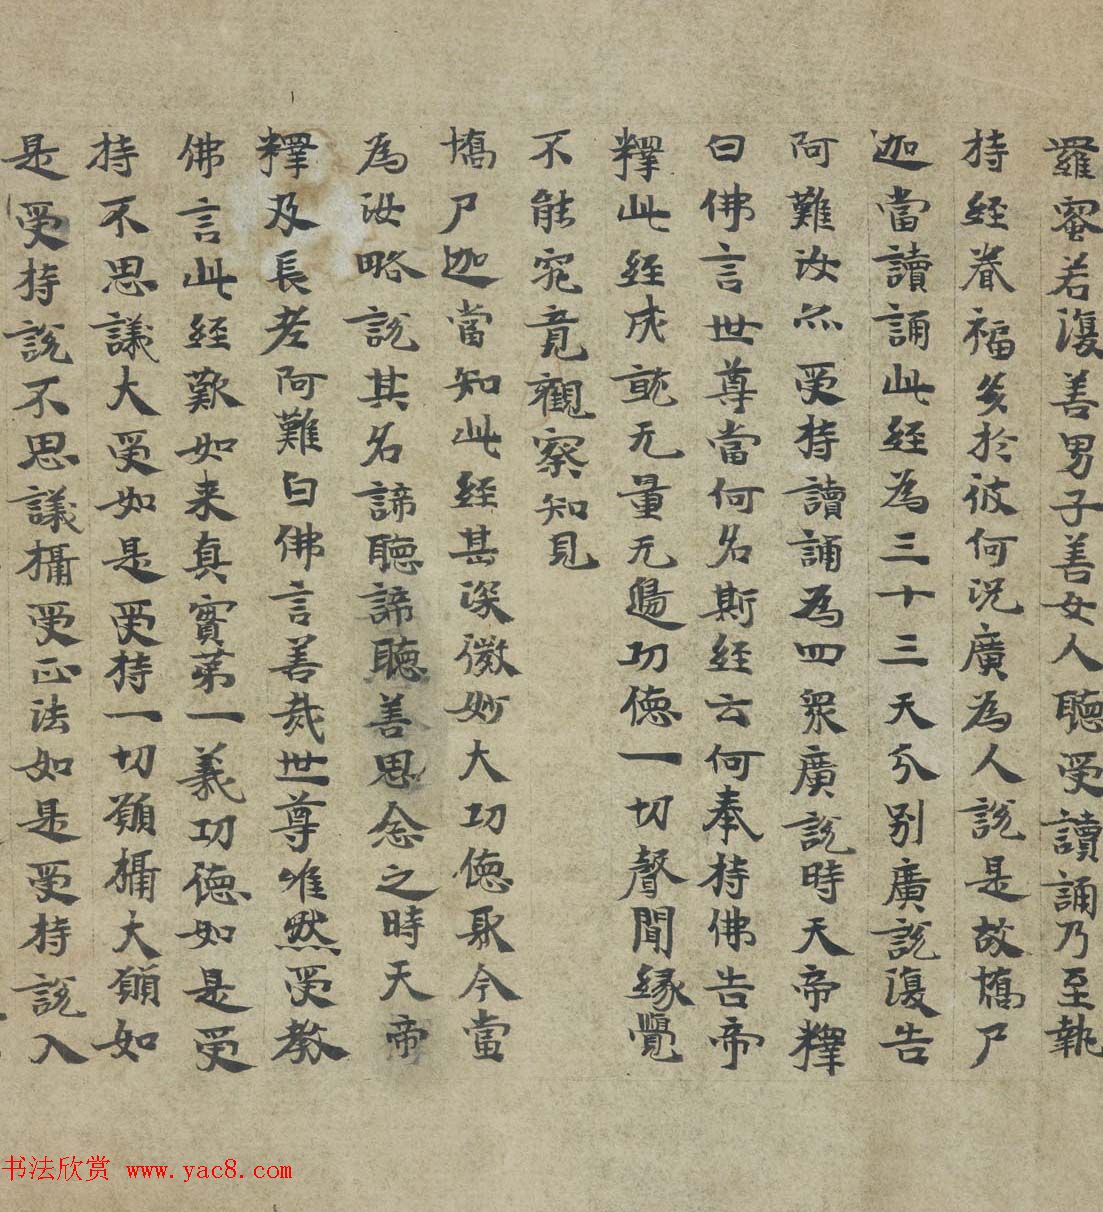 羅蜜若復善男子善女人聽受讀誦乃至執
持經卷福多於彼何況廣為人說是故憍尸
迦當讀誦此經為三十三天分別廣說復告
阿難汝亦受持讀誦為四眾廣說時天帝釋
白佛言世尊當何名斯經云何奉持佛告帝
釋此經成就无量无邊功德一切聲聞緣覺
不能究竟觀察知見
憍尸迦當知此經甚深微妙大功德聚今當
為汝略說其名諦聽諦聽善思念之時天帝
釋及長老阿難白佛言善哉世尊唯然受教
佛言此經歎如来真實第一義功德如是受
持不思議大受如是受持一切願攝大願如
是受持說不思議攝受正法如是受持說入
书法欣赏 www.yac8.com